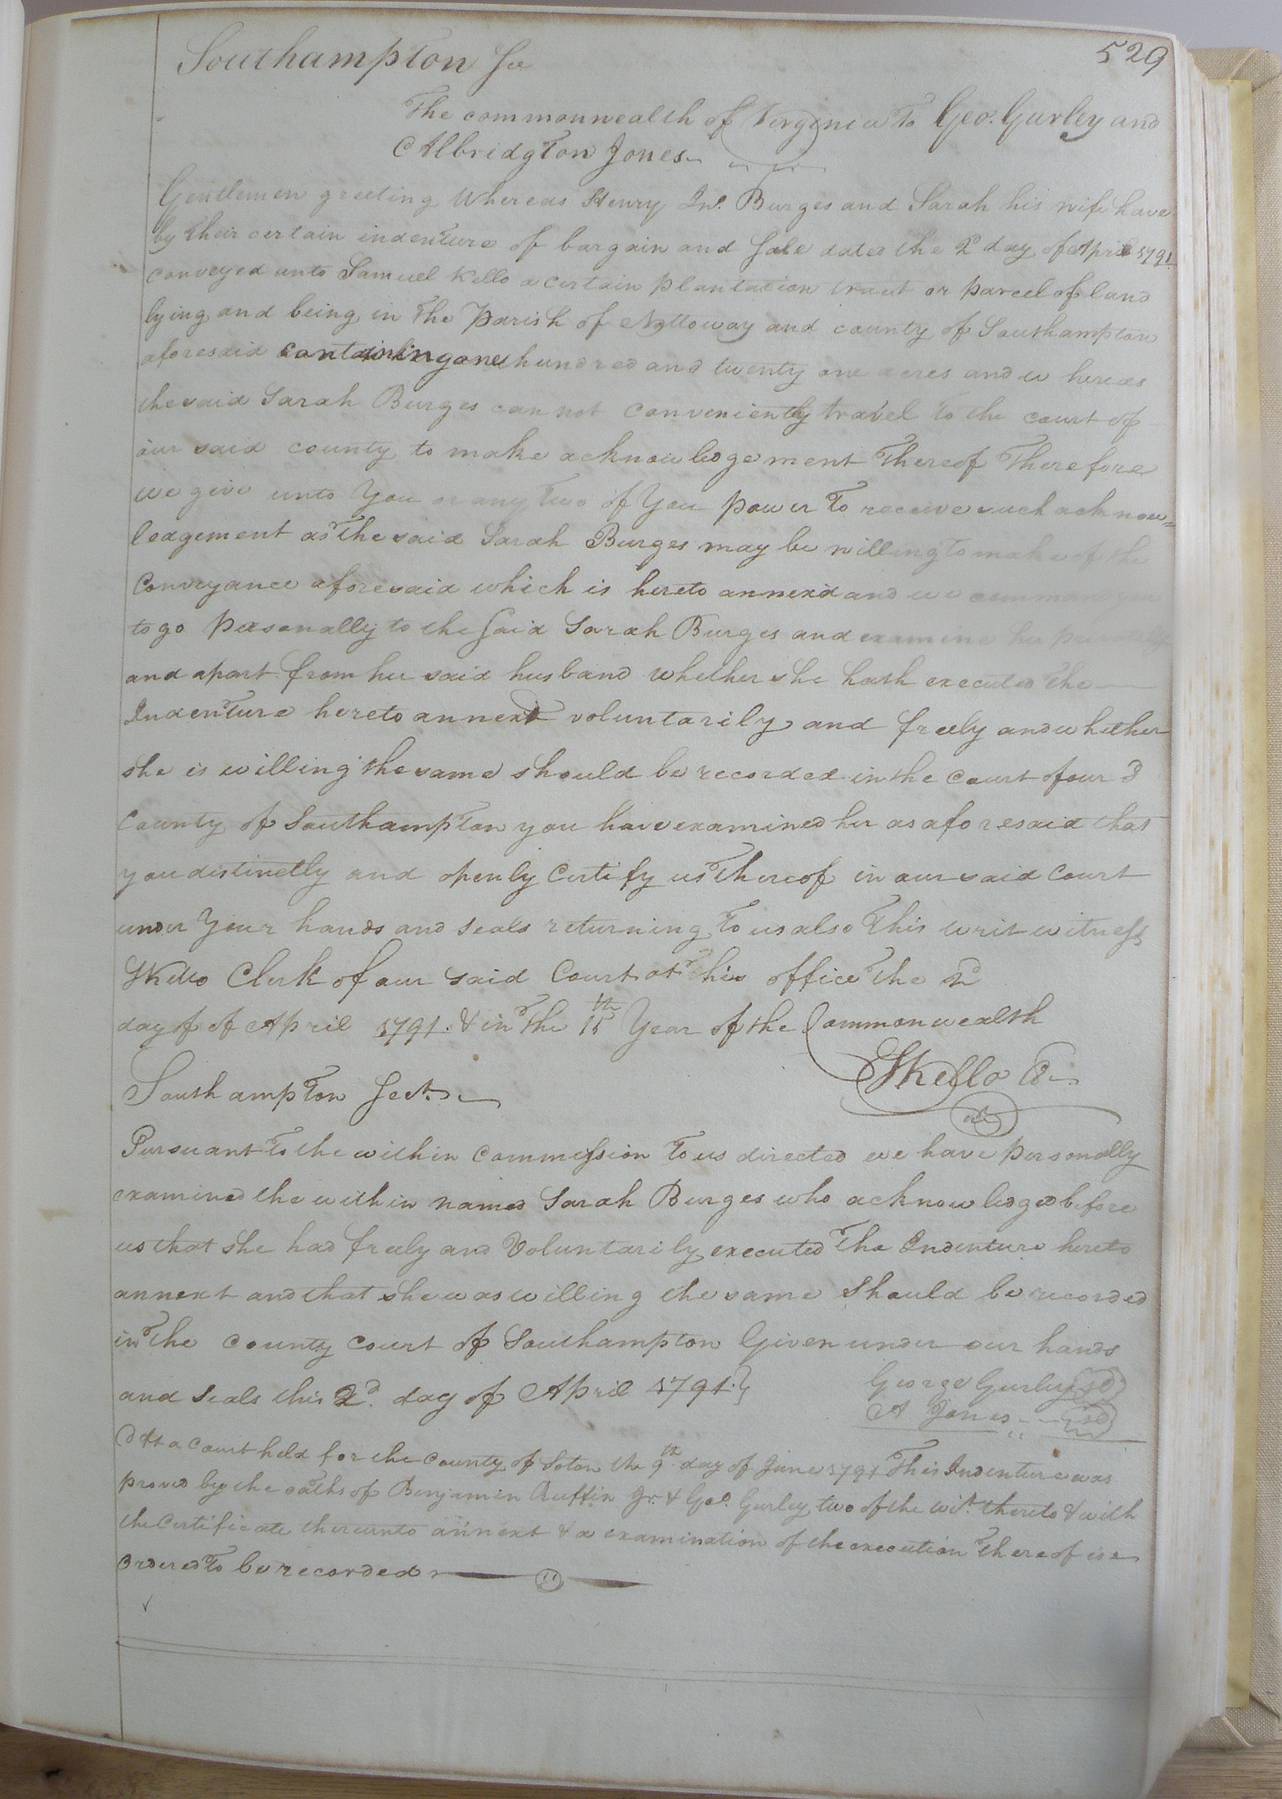 529
Southampton Sc
The commonwealth of Virginia To Geo. Gurley and
Albridgton Jones
Gentlemen greeting Whereas Henry Jno. Burges and Sarah his wife have
by their certain indenture of bargain and Sale dated the 2d day of April 1791
conveyed unto Samuel Kello a certain plantation tract or parcel of land
lying and being in the Parish of Nottoway and county of Southampton
aforesaid containing one hundred and twenty one acres and whereas
the said Sarah Burges can not conveniently travel to the court of
our said county to make acknowledgement Thereof Therefore
we give unto You or any Two of You power To receive such acknow=
ledgement as The said Sarah Burges may be willing to make of the
Conveyance aforesaid which is hereto annexd and we command you
to go Personally to the Said Sarah Burges and examine her privately
and apart from her said husband whether she hath executed The
Indenture hereto annext voluntarily and freely and whether
she is willing the same should be recorded in the Court of our sd
County of Southampton you have examined her as aforesaid that
you distinctly and openly Certify us Thereof in our said Court
under Your hands and seals returning To us also This writ witness
SKello Clerk of our said Court at his office The 2d
day of of April 1791. & in The 15th Year of the Commonwealth
SKello
Southampton Sct.
Pursuant To the within commission To us directed we have personally
examined the within named Sarah Burges who acknowledged before
us that she had freely and Voluntarily executed The Indenture hereto
annext and that she was willing the same Should be recorded
in The county court of Southampton Given under our hands
and Seals this 2d. day of April 1791.}
George Gurley (sd)
A Jones (sd)
At a court held for the County of Soton the 9th day of June 1791 This Indenture was
proved by the oaths of Benjamin Ruffin Jr. & Geo. Gurley two of the wits. thereto & with
the Certificate thereunto annext & a examination of the execution Thereof is
Ordered To be recorded